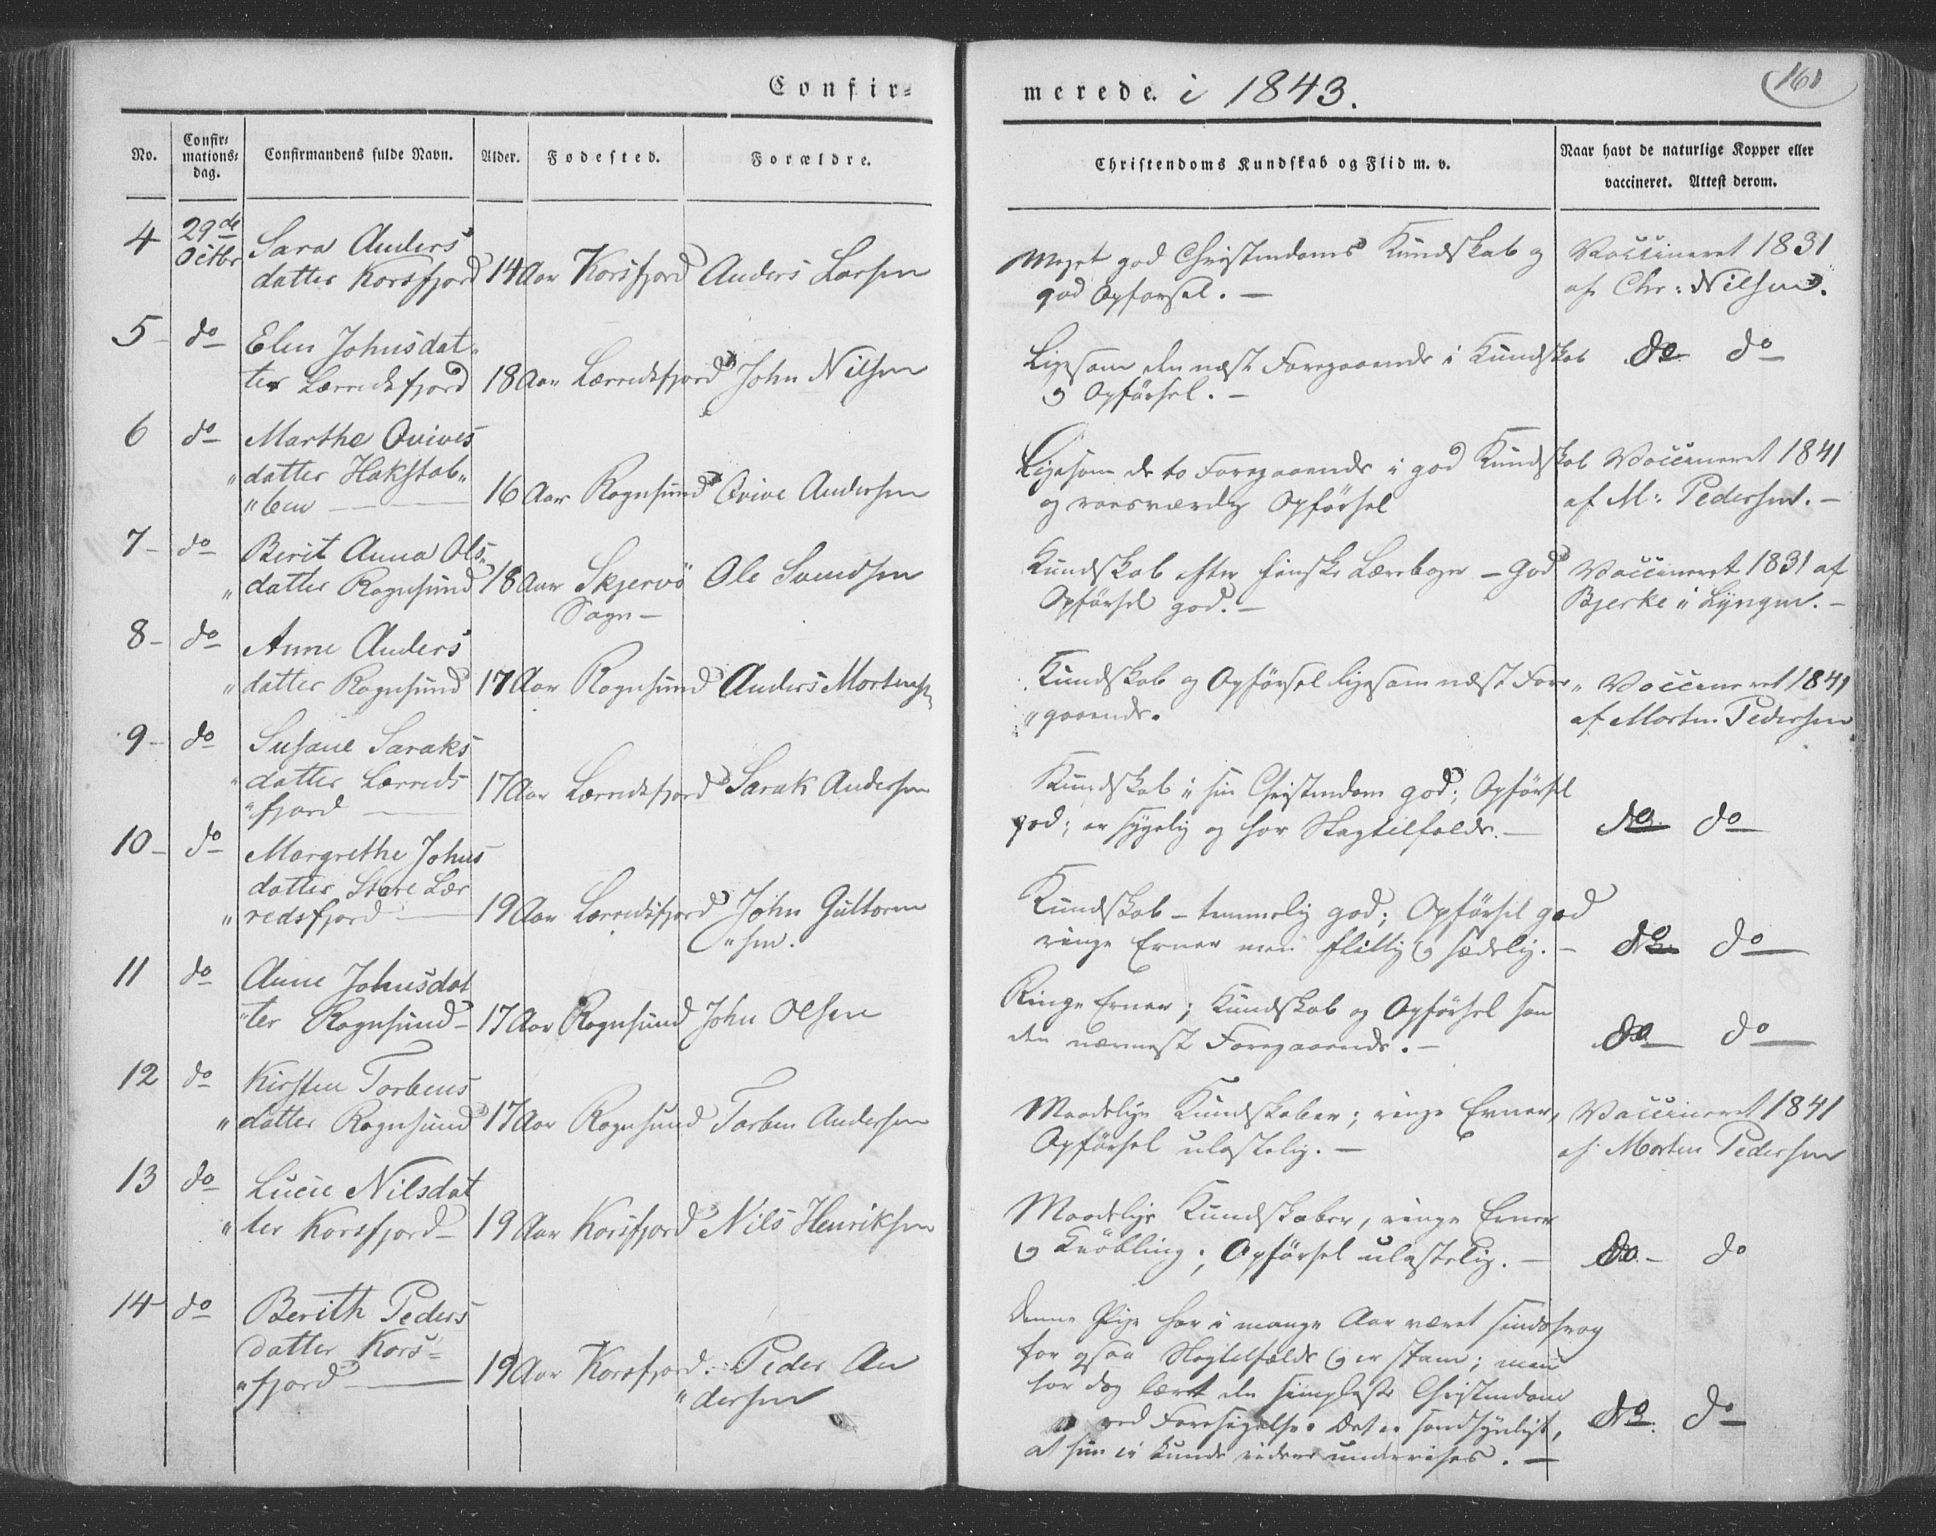 Confir-
merede. i 1843.
161
No.
Confir-
mations-
dag.
Confirmandens fulde Navn.
Alder.
Fødested.
Forældre.
Christendoms Kundskab og Flid m. v.
Naar havt de naturlige Kopper eller
vaccineret. Attest derom.
4 29de Octbr
Sara Anders
datter Korsfjord
14 Aar Korsfjord Anders Larsen
Meget god Christendoms Kundskab og
god Opførsel. —
Vaccineret 1831
af Chr: Nilsen.
5 — do
Elen Johnsdat„
ter Lærredsfjord
18 Aar Lærredsfjord John Nilsen
Ligesom den næst Foregaaende i Kundskab
og Opførsel. —
do do
6 do
Marthe Qvives
„datter Hakstab„
„ben —
16 Aar Rognsund Qvive Andersen
Ligesom de to Foregaaende i god Kundskab
og roesværdig Opførsel
Vaccineret 1841
af M: Pedersen. —
7 — do
Berit Anna Ols„
„datter Rognsund
18 Aar Skjervö
Sogn —
Ole Svendsen
Kundskab efter finske Lærebøger — God
Opførsel god. —
Vaccineret 1831 af
Bjerke i Lyngen. —
8 — do
Anne Anders
„datter Rognsund
17 Aar Rognsund Anders Mortensen
Kundskab og Opførsel ligesom næst Fore
„gaaende.
„Vaccineret 1841
af Morten Pedersen
9 — do
Susane Saraks
„datter Lærreds
„fjord —
17 Aar Lærredsfjord Sarak Andersen
Kundskab i sin Christendom god; Opførsel
god; er sygelig og har Slagtilfælde. —
do do
10 — do
Margrethe Johns
datter Store Lær
„redsfjord —
19 Aar Lærredsfjord John Guttorm
„sen.
Kundskab — temmelig god; Opførsel god
ringe Evner men flittig og sædelig. —
do do
11 do
Anne Johnsdat
„ter Rognsund —
17 Aar Rognsund John Olsen
Ringe Evner; Kundskab og Opførsel som
den nærmest Foregaaende. —
do do
12 do
Kirsten Torbens
„datter Rognsund
17 Aar Rognsund Torben Andersen
Maadelige Kundskaber; ringe Evner,
Opførsel ulastelig. —
Vaccineret 1841
af Morten Pedersen
13 do
Lucie Nilsdat
„ter Korsfjord —
19 Aar Korsfjord Nils Henriksen
Maadelige Kundskaber, ringe Evner
og Kröbling; Opførsel ulastelig. —
do — do
14 do
Berith Peders
datter Kors-
„fjord —
19 Aar Korsfjord. Peder An
„dersen
Denne Pige har i mange Aar været sindssvag
for ogsaa Slagtilfælde og er stam; men
har dog lært den simpleste Christendom
ved Foresigelse. Det er sandsynligt,
at hun ei kunde videre undervises. —
do do